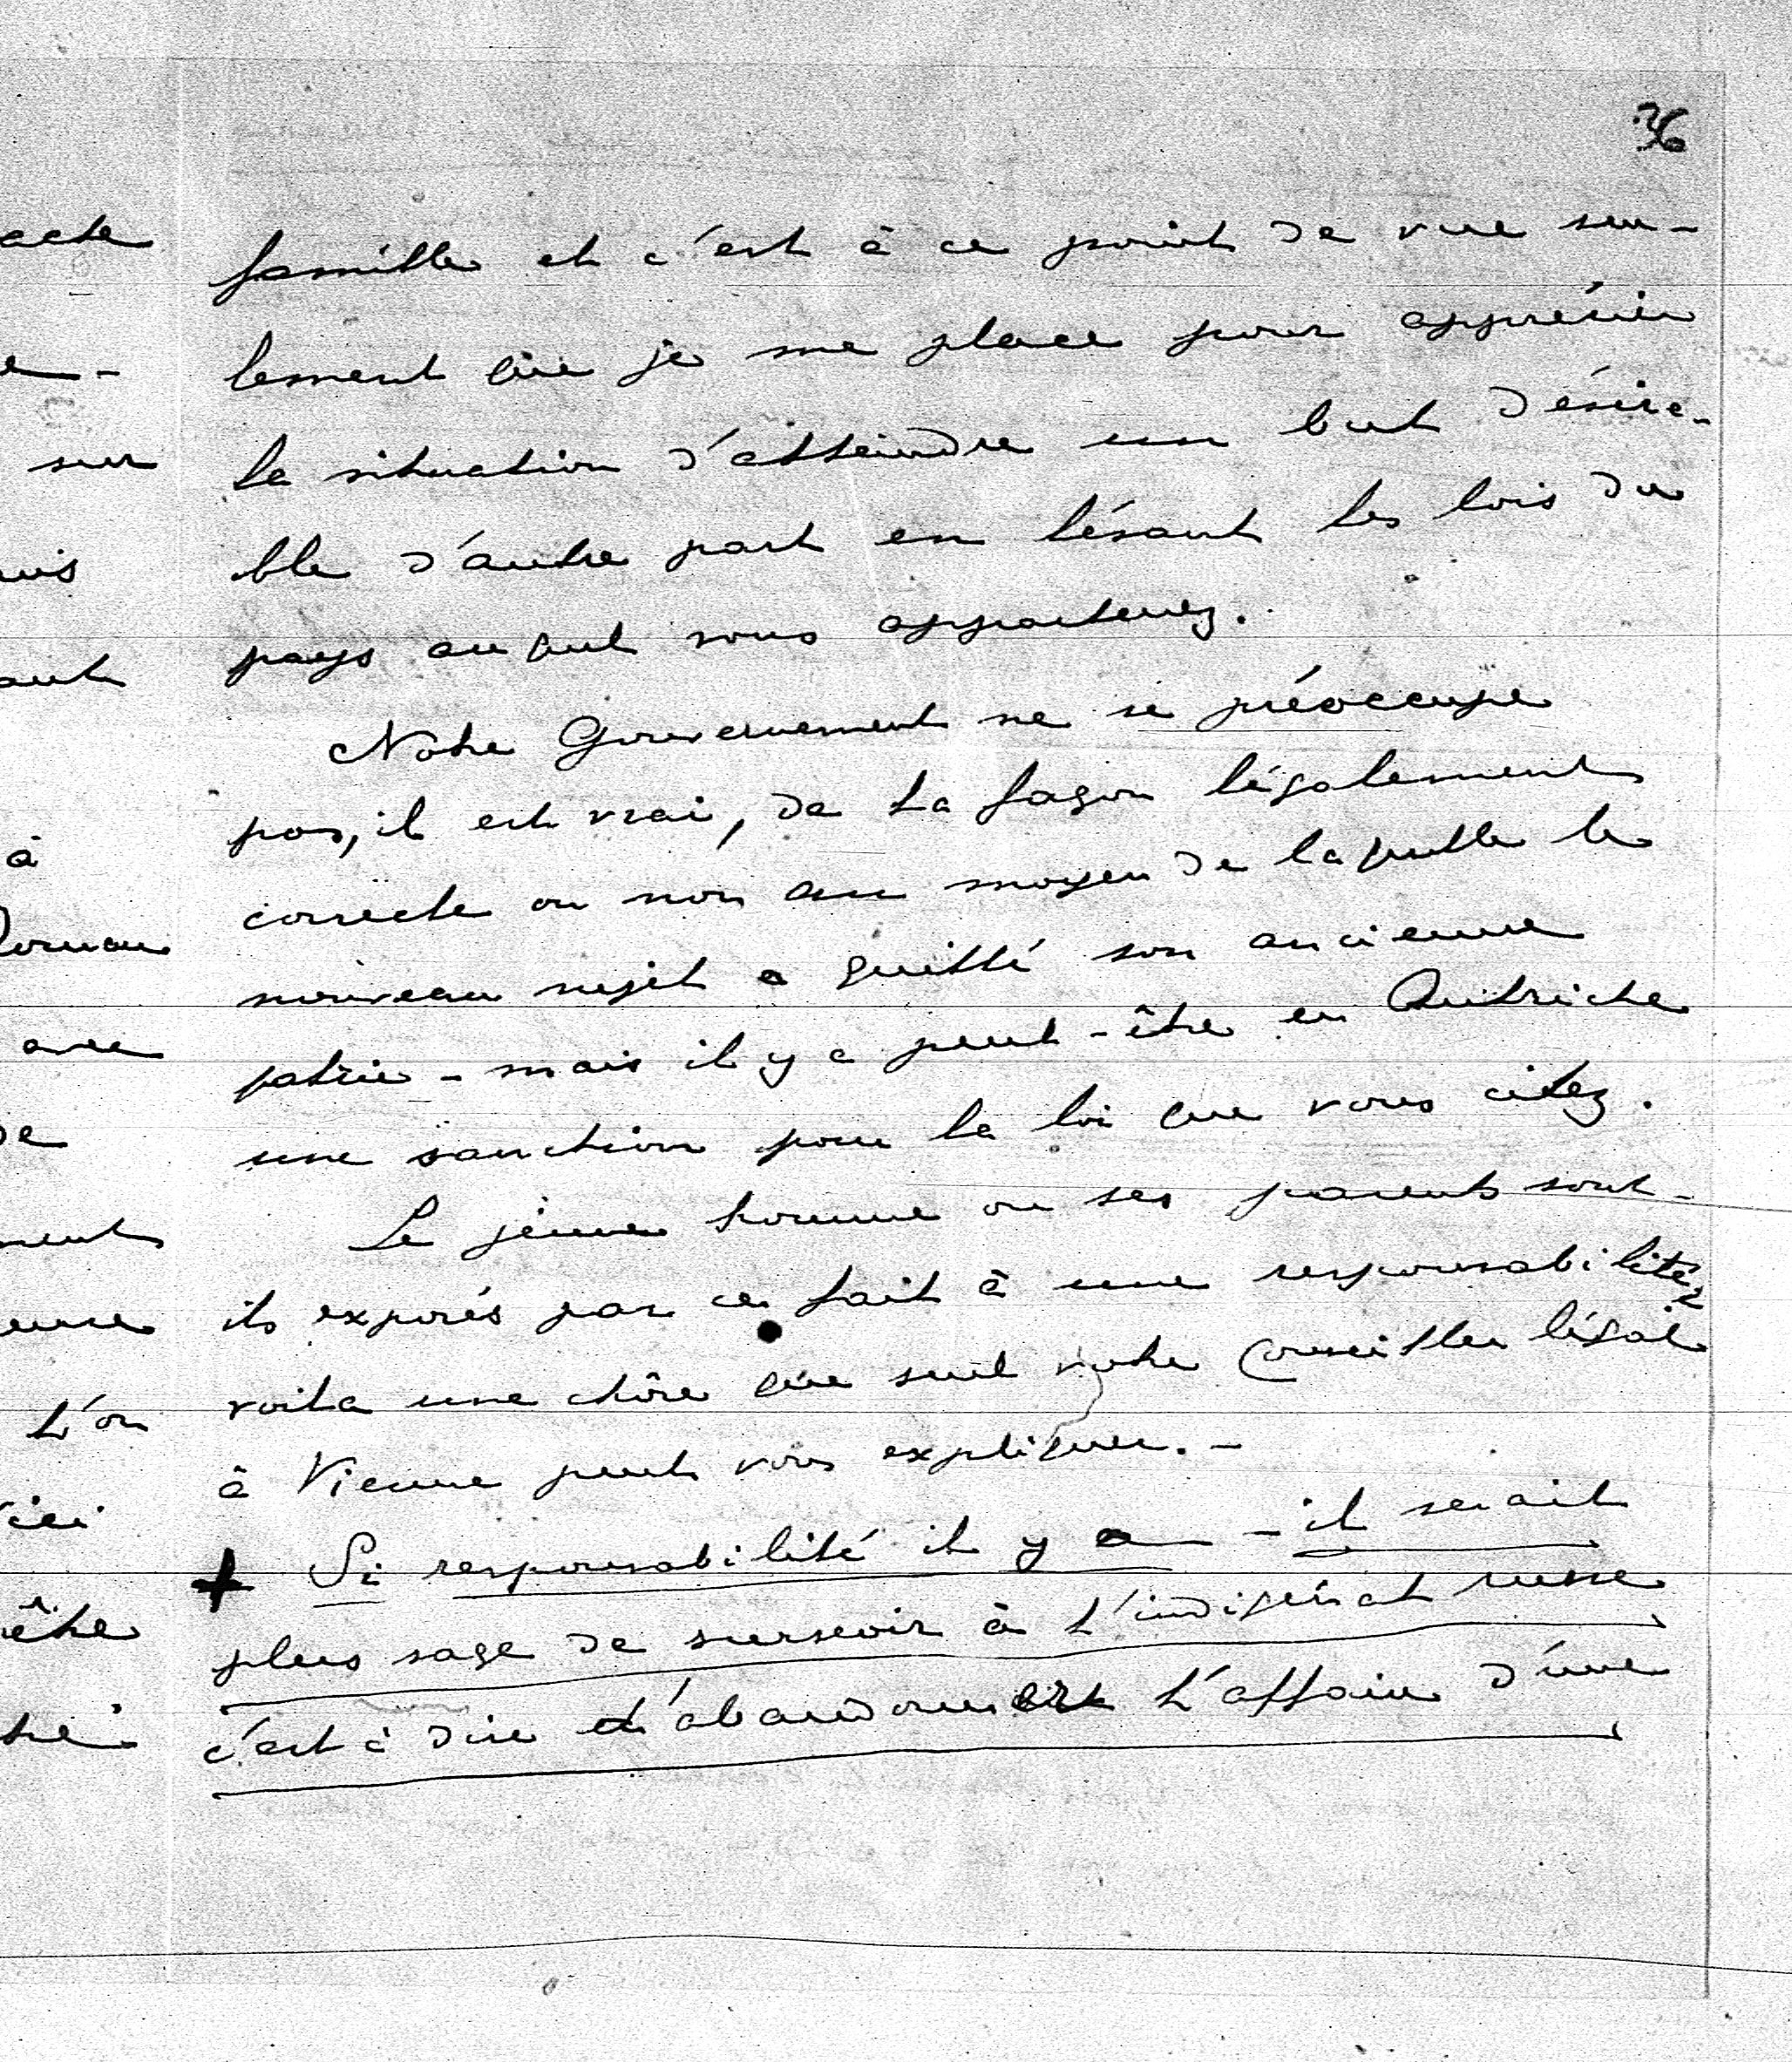 36
famille et c'est à ce point de vue seu-
lement que je me place pour apprécier
la situation d'atteindre un but désira-
ble d'autre part en lésant les lois du
pays auquel vous appartenez.
Notre Gouvernement ne se préoccupe
pas, il est vrai, de la façon légalement
correcte ou non au moyen de laquelle le
nouveau sujet a quitté son ancienne
patrie - mais il y a peut-être en Autriche
une sanction pour la loi que vous citez.
Le jeune homme ou ses parents sont-
ils exposés par ce fait à une responsabilité,
voila une chose que seul votre Conseiller légal
à Vienne peut vous expliquer. -
+ Si responsabilité il y a - il serait
plus sage de surseoir à l'indigénat russe
c'est à dire d'abandonner l'affaire d'une
acte
sur
à
avec
de
L'on